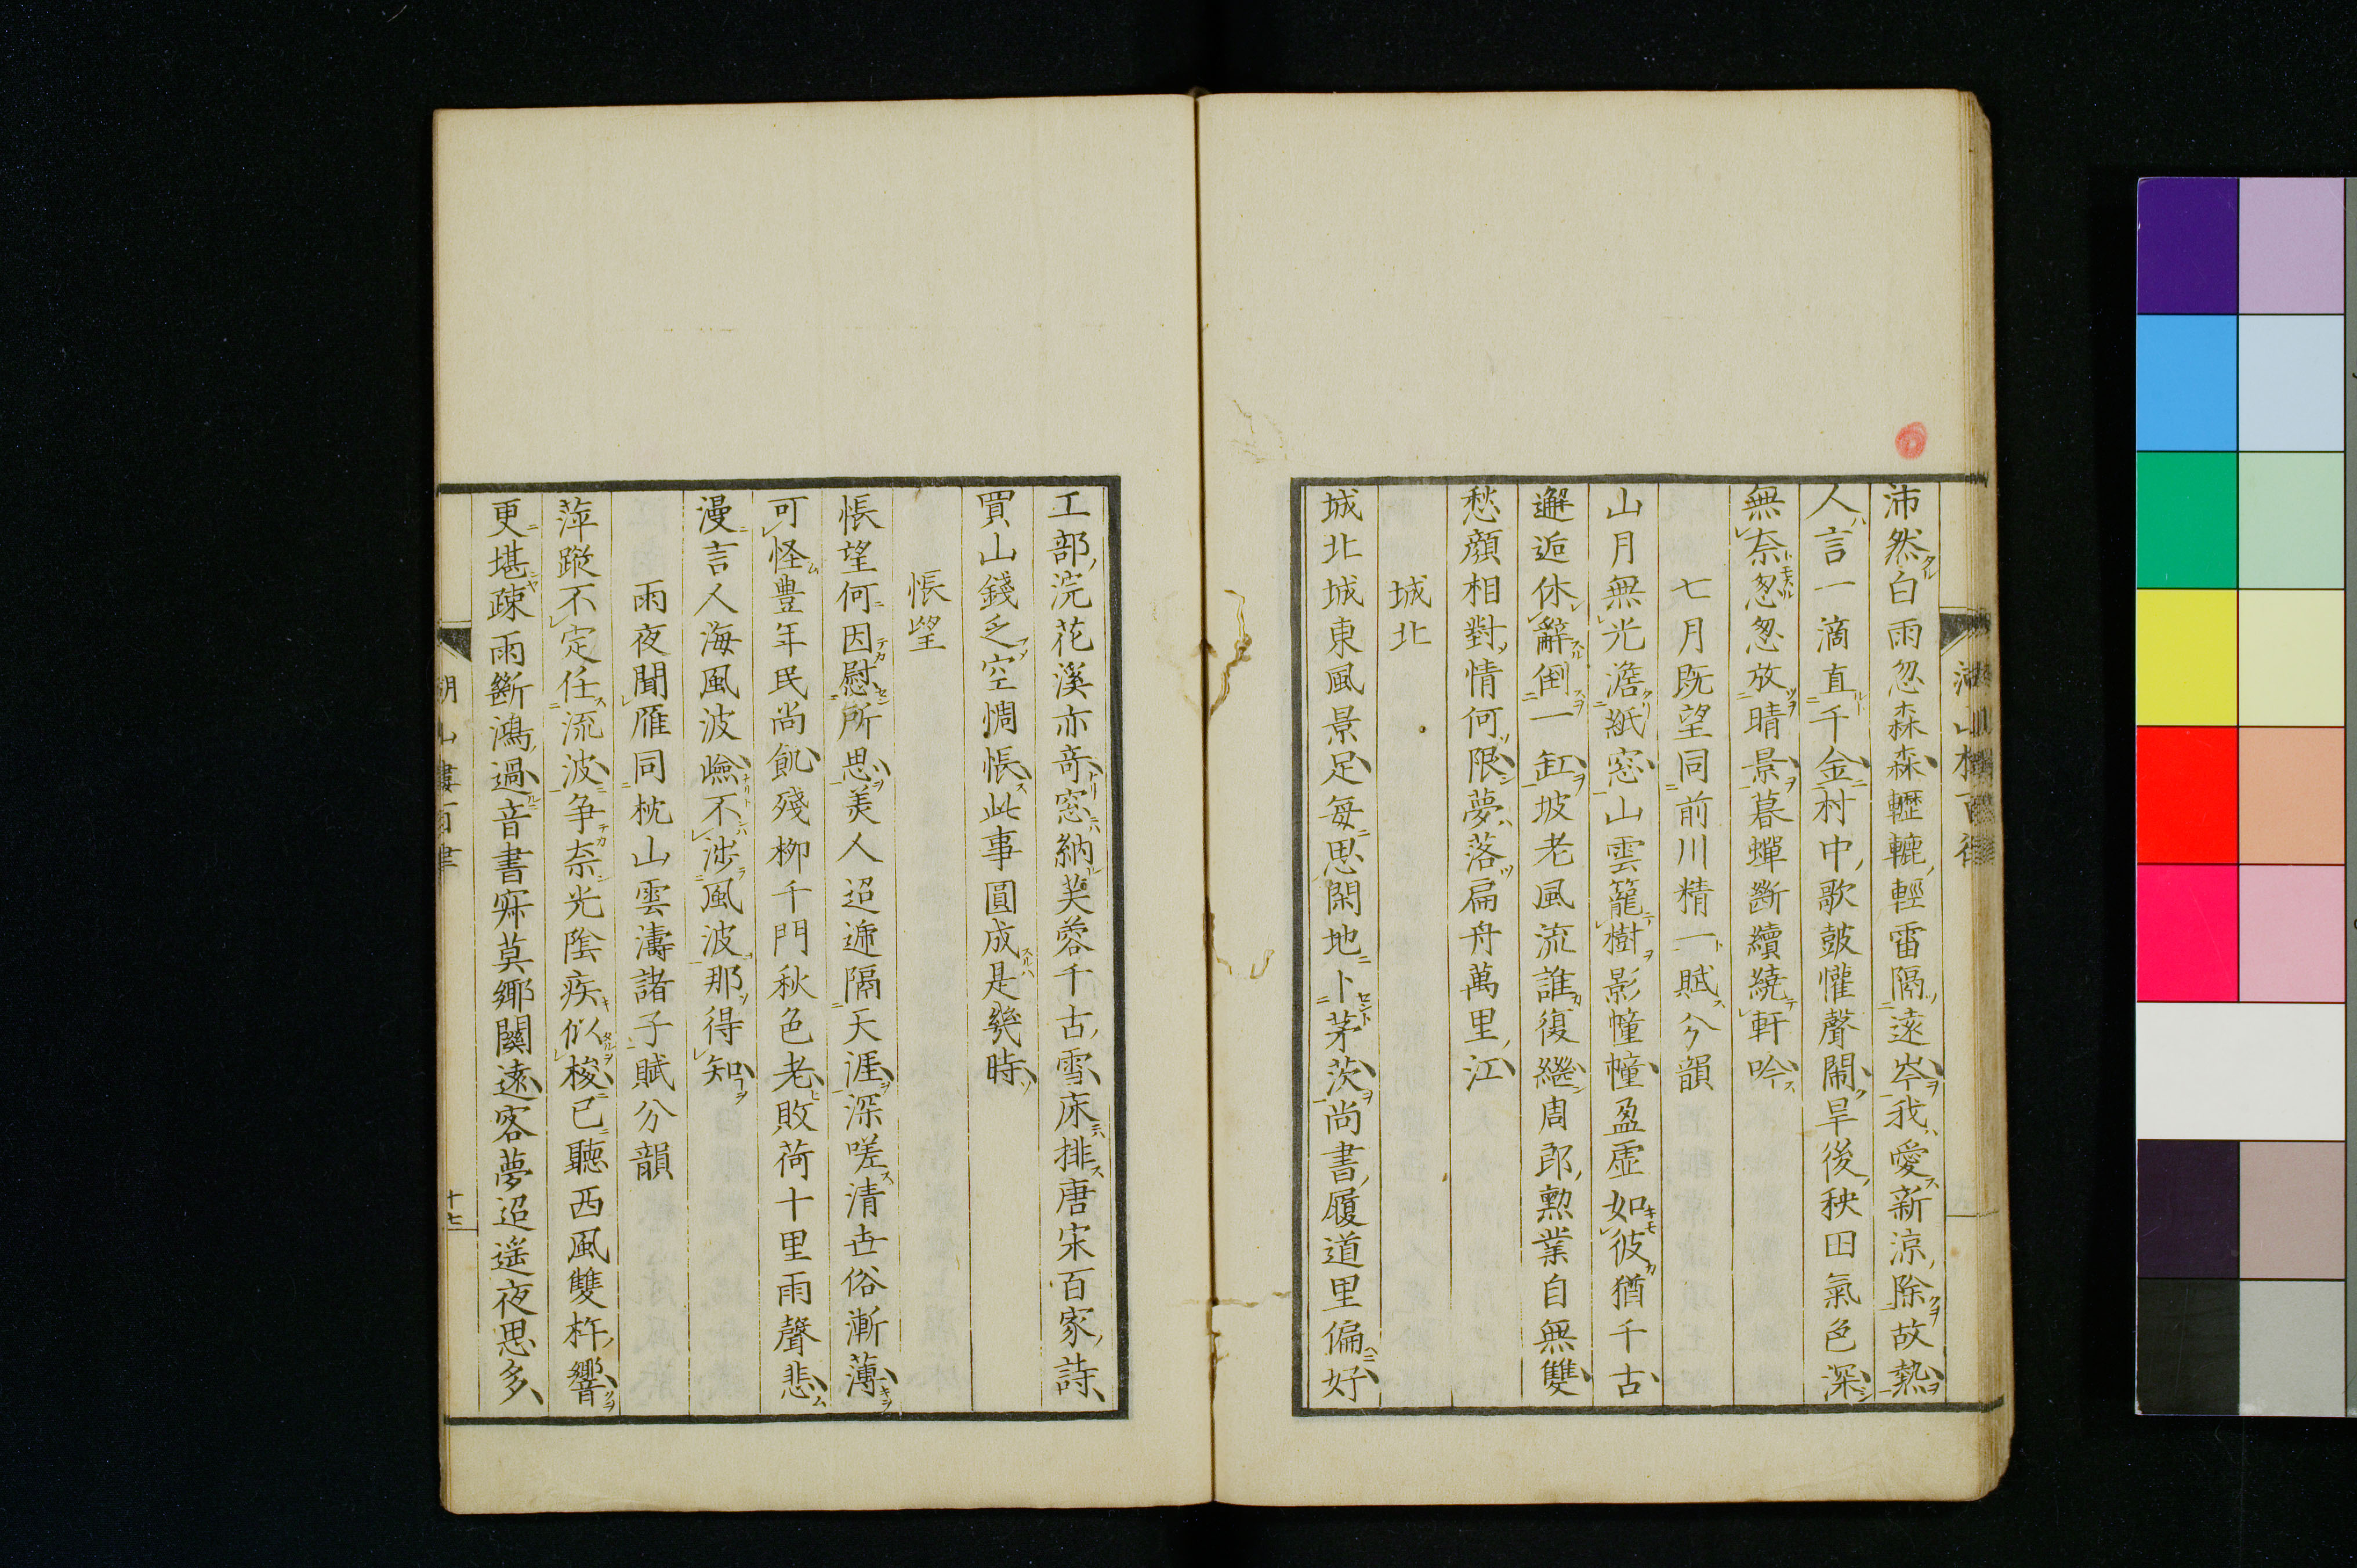 沛然白雨忽森森轣轆輕雷隔遠岑我愛新涼除故熱
人言一滴直千金村中歌鼓懽聲鬧旱後秧田氣色深
無奈怱怱放晴景暮蟬斷續繞軒吟
七月既望同前川精一賦分韻
山月無光澹紙窓山雲籠樹影幢幢盈虛如彼猶千古
邂逅休辭倒一缸坡老風流誰復繼周郎勲業自無雙
愁顔相對情何限夢落扁舟萬里江
城北
城北城東風景足每思閑地卜茅茨尚書履道里偏好
工部浣花溪亦竒窓納芙蓉千古雪床排唐宋百家詩
買山錢乏空惆悵此事圓成是幾時
悵望
悵望何因慰所思美人迢遞隔天涯深嗟清世俗漸薄
可怪豊年民尚飢殘柳千門秋色老敗荷十里雨聲悲
漫言人海風波嶮不涉風波那得知
雨夜聞雁同枕山雲濤諸子賦分韻
萍蹤不定任流波争奈光陰疾似梭已聽西風雙杵響
更堪疎雨斷鴻過音書寂莫鄉關遠客夢迢遥夜思多
十七